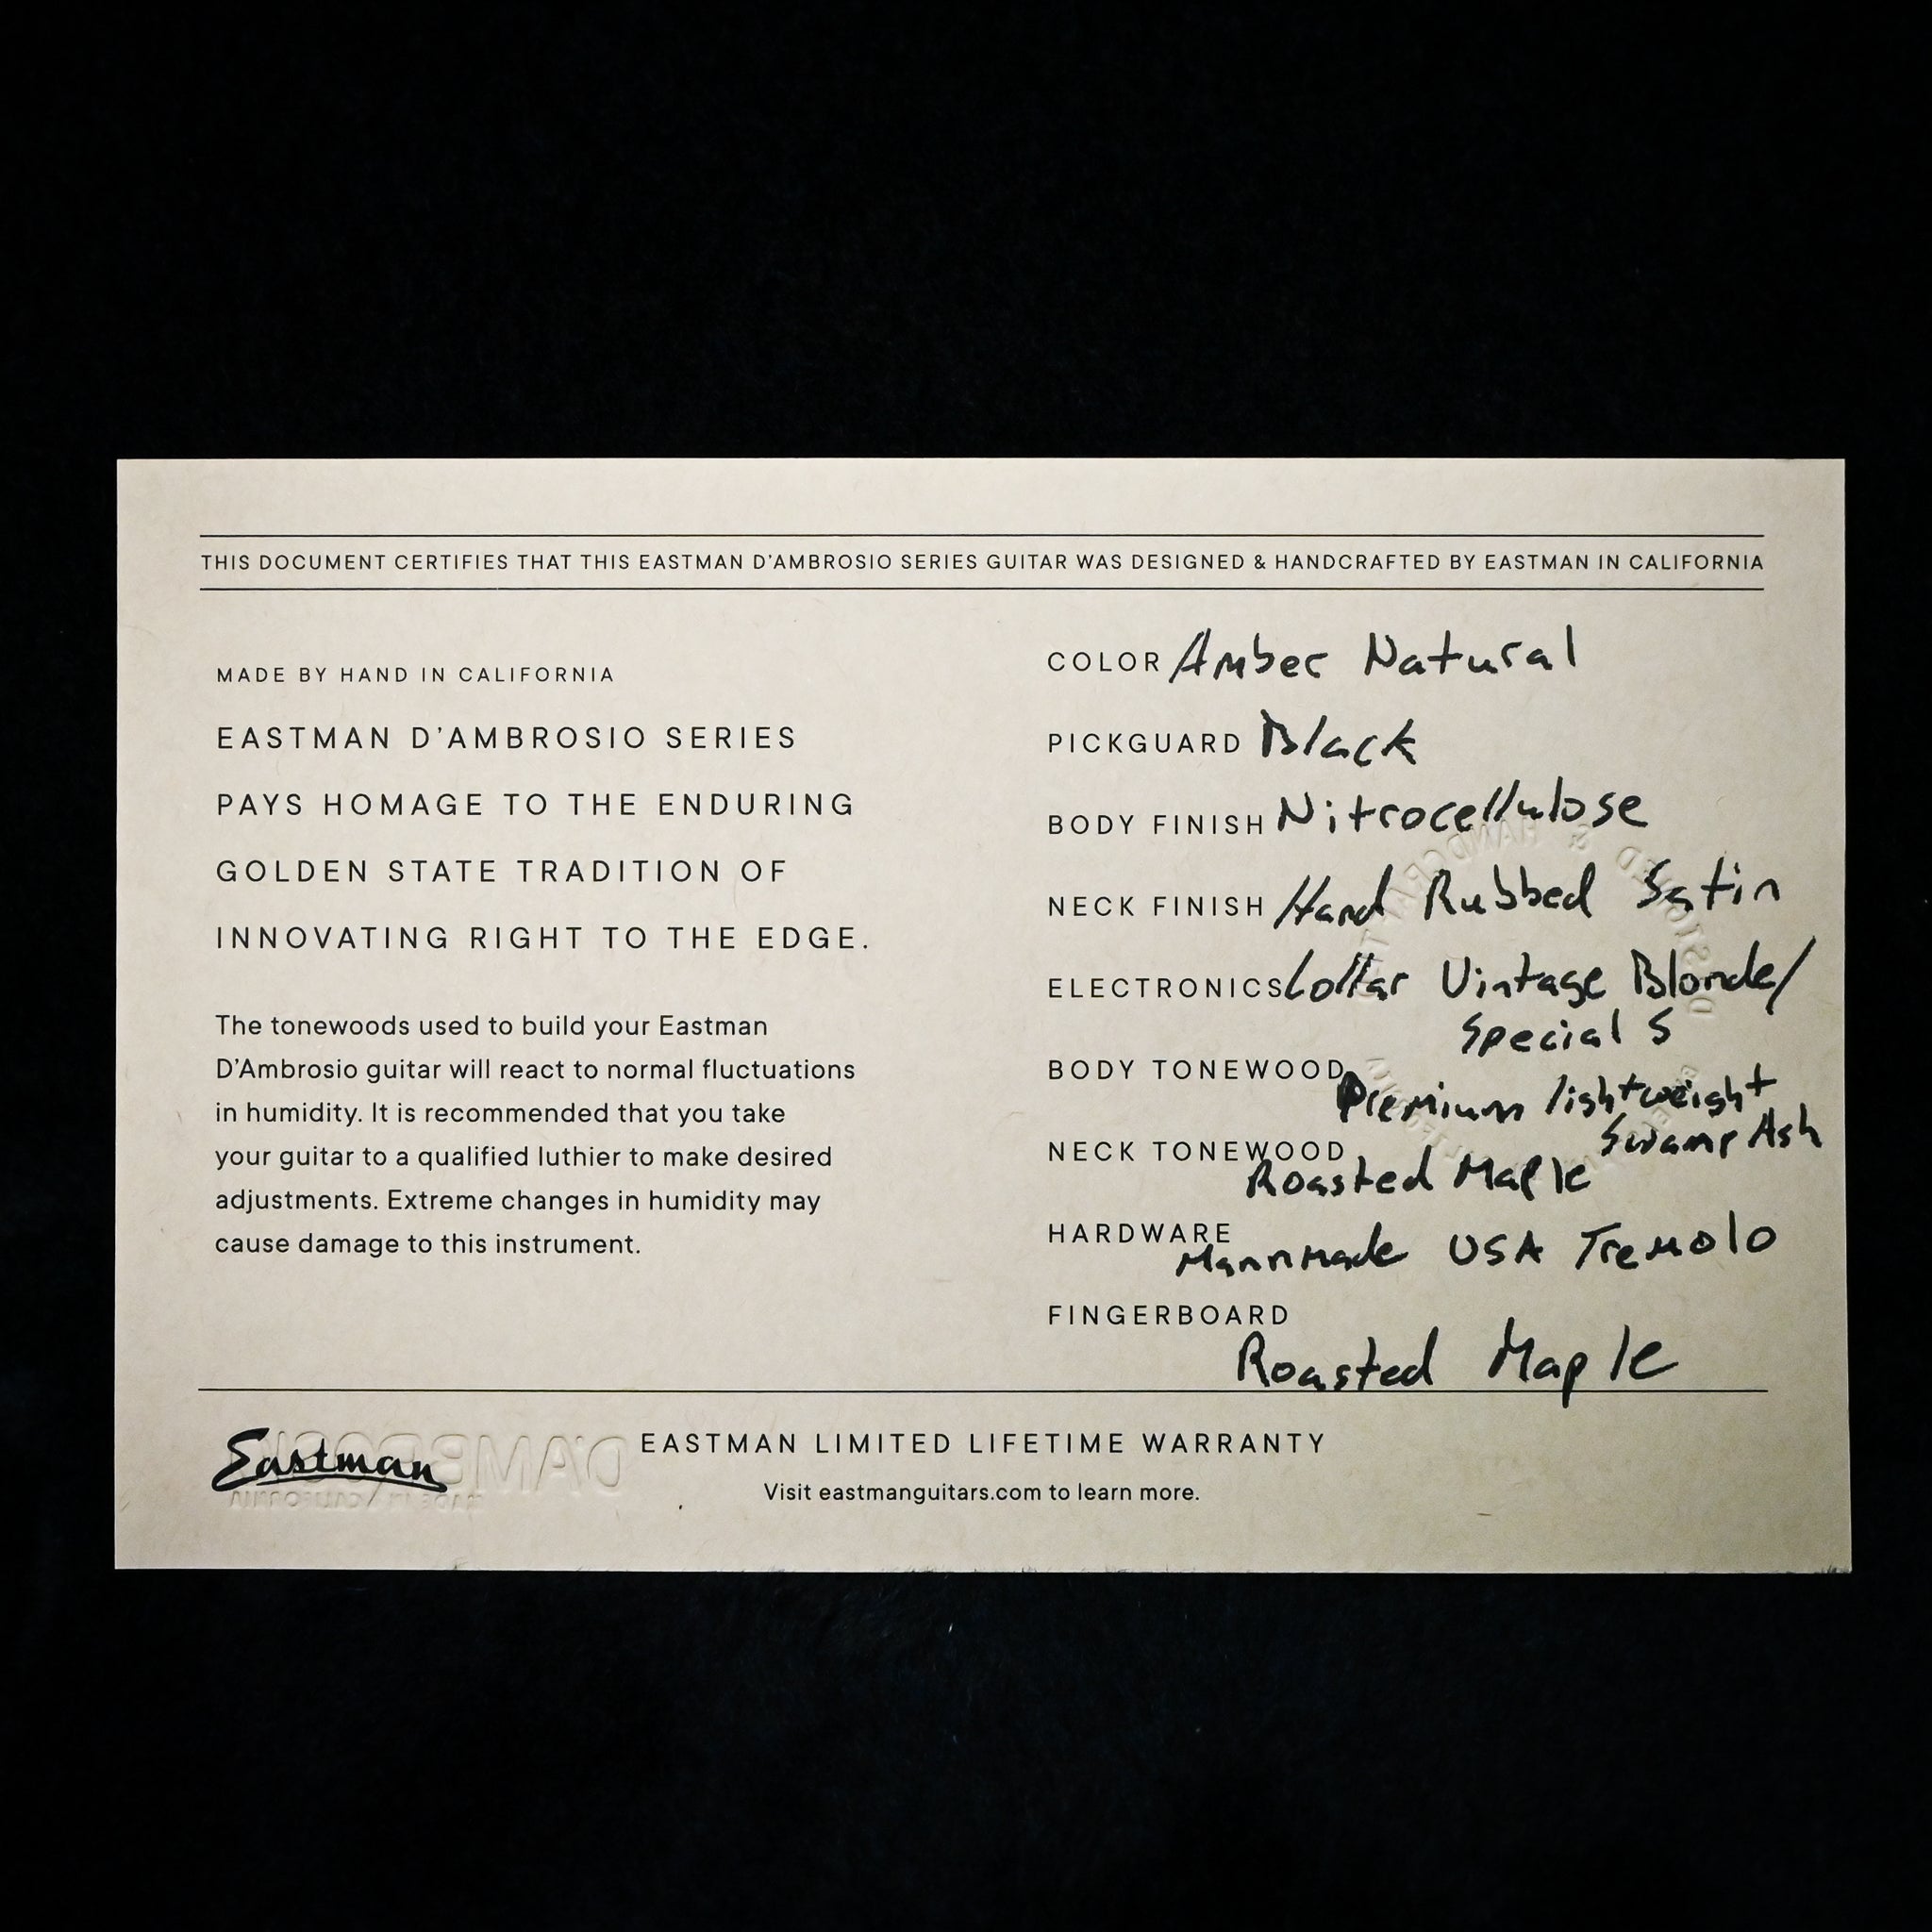 THIS DOCUMENT CERTIFIES THAT THIS EASTMAN D'AMBROSIO SERIES GUITAR WAS DESIGNED & HANDCRAFTED BY EASTMAN IN CALIFORNIA
MADE BY HAND IN CALIFORNIA
EASTMAN D'AMBROSIO SERIES
PAYS HOMAGE TO THE ENDURING
GOLDEN STATE TRADITION OF
INNOVATING RIGHT TO THE EDGE.
The tonewoods used to build your Eastman
D'Ambrosio guitar will react to normal fluctuations
in humidity. It is recommended that you take
your guitar to a qualified luthier to make desired
adjustments. Extreme changes in humidity may
cause damage to this instrument.
COLOR Amber Natural
PICKGUARD Black
BODY FINISH Nitrocellulose
NECK FINISH Hand Rubbed Satin
ELECTRONICS Lollar Vintage Blonde/
Special S
BODY TONEWOOD Premium lightweight
Swamp Ash
NECK TONEWOOD Roasted Maple
HARDWARE Mannmade USA Tremolo
FINGERBOARD
Roasted Maple
Eastman
D'AMBROSIO
MADE IN CALIFORNIA
EASTMAN LIMITED LIFETIME WARRANTY
Visit eastmanguitars.com to learn more.